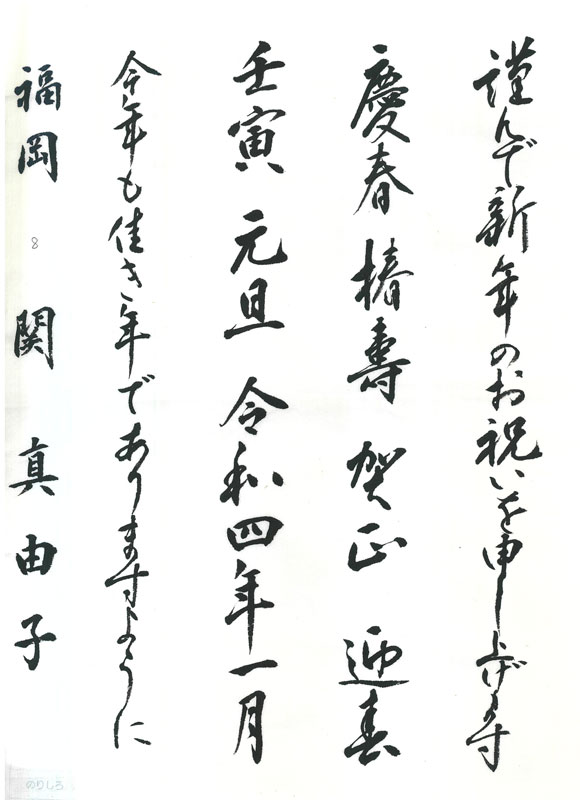 謹んで新年のお祝いを申し上げます
慶春 椿寿 賀正 迎春
壬寅 元旦 令和四年一月
今年も佳き年でありますように
福岡 8 関真由子
のりしろ